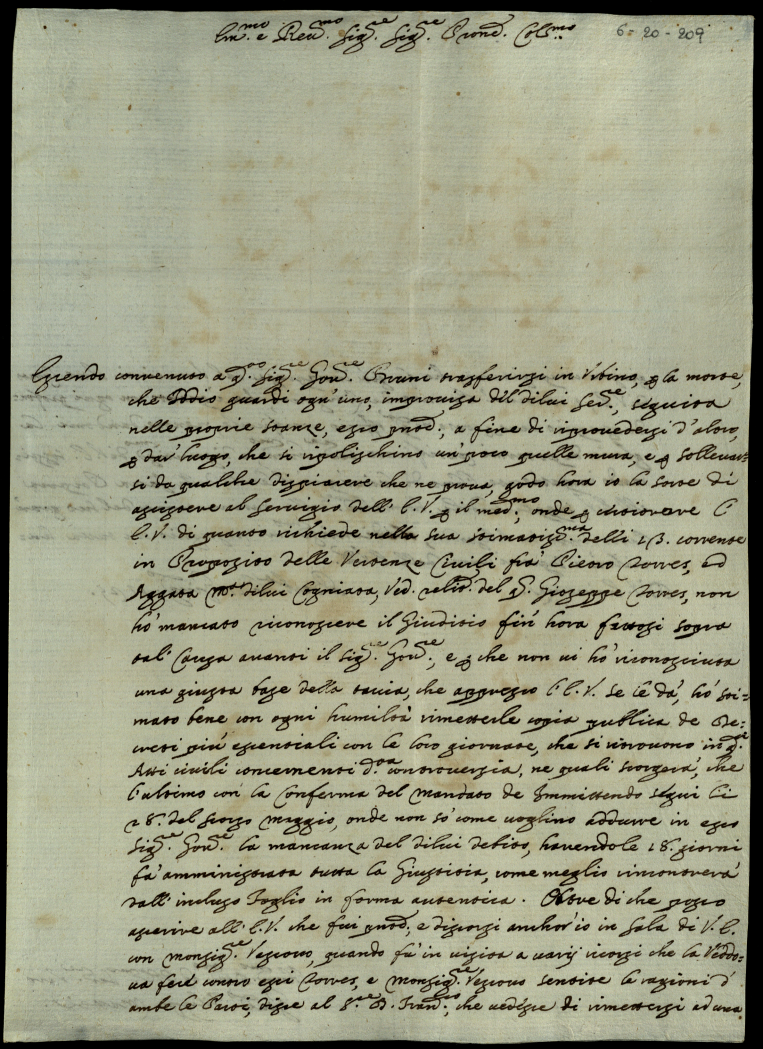 Em.mo e Rev.mo Sig.re Sig.re Pron.e Col.mo
6-20-209
Essendo convenuto a q.sto Sig.re Gov.re Bruni trasferirsi in Urbino, p la morte,
che Iddio guardi ogn'uno, improvisa del dilui Ser.re, seguita
nelle proprie stanze, esso pnte.; a fine di riprovedersi d'altro,
p dar luogo, che si ripolischino un poco quelle mura, e p sollevar=
si da qualche dispiacere che ne prova, godo hora io la sorte di
assistere al servigio dell'E.V. p il med.mo, onde p
E.V. di quanto richiede nella sua stimatiss.ma delli 13. corrente
in Proposito delle Vertenze Civili frà Pietro Torres, ed
Aggata M.a dilui Cogniata, Ved. relitt. del q. Gioseppe Torres, non
hò mancato riconoscere il Giuditio fin' hora fattosi sopra
tal' Causa avanti il Sig.re Gov.re, e p che non vi hò riconosciuta
una giusta base della taccia, che appresso l'E.V. se le dà, hò sti=
mato bene con ogni humiltà rimetterle copia publica de De=
creti più essentiali con le loro giornate, che si ritrovono in q.
Atti civili concernenti d.ta controversia, ne quali scorgerà, che
l'ultimo con la Conferma del Mandato de Immittendo seguì li
28. del scorso Maggio, onde non sò come voglino addurre in esso
Sig.re Gov.re la mancanza del dilui debito, havendole 18. giorni
fà amministrata tutta la Giustitia, come meglio rincontrerà
dall'incluso Foglio in forma autentica. Oltre di che posso
asserire all'E.V. che fui pnte, e discorsi anch'io in Sala di V.E.
con Monsig.re Vescovo, quando fù in visita a varij ricorsi che la Vedo=
va fece contro essi Torres, e Monsig.re Vescovo sentite la ragioni d'
ambe le Parti, disse al S.re D. Fran.co, che vedesse di rimettersi ad una